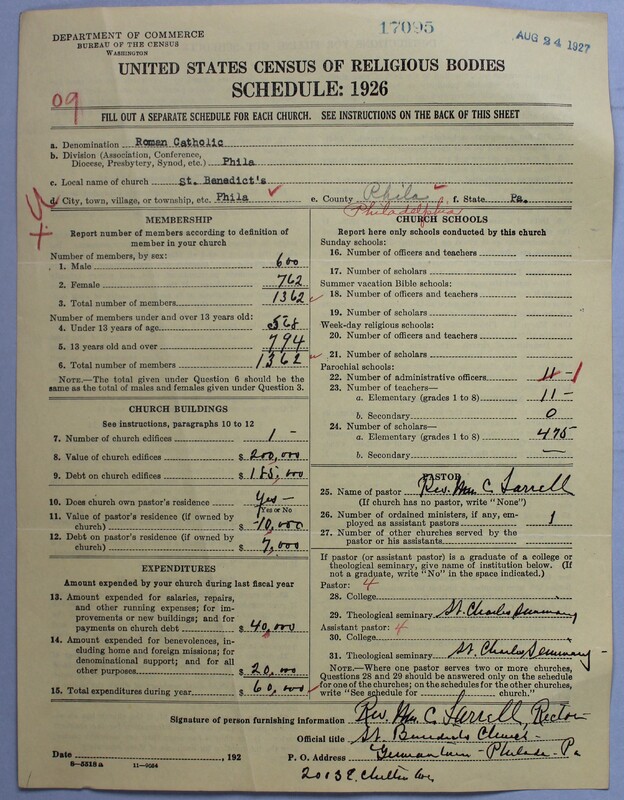 17095
AUG 24 1927
DEPARTMENT OF COMMERCE
BUREAU OF THE CENSUS
WASHINGTON
UNITED STATES CENSUS OF RELIGIOUS BODIES
SCHEDULE: 1926
09
FILL OUT A SEPARATE SCHEDULE FOR EACH CHURCH. SEE INSTRUCTIONS ON THE BACK OF THIS SHEET
a. Denomination Roman Catholic
b. Division (Association, Conference,
Diocese, Presbytery, Synod, etc.) Phila
c. Local name of church St. Benedict's
d. City, town, village, or township, etc. Phila e. County Phila f. State Pa.
Philadelphia
MEMBERSHIP
Report number of members according to definition of
member in your church
Number of members, by sex:
1. Male 600
2. Female 762
3. Total number of members 1362
Number of members under and over 13 years old:
4. Under 13 years of age 568
5. 13 years old and over 794
6. Total number of members 1362
NOTE.—The total given under Question 6 should be the
same as the total of males and females given under Question 3.
CHURCH BUILDINGS
See instructions, paragraphs 10 to 12
7. Number of church edifices 1 –
8. Value of church edifices $ 200,000
9. Debt on church edifices $ 185,000
10. Does church own pastor's residence Yes –
Yes or No
11. Value of pastor's residence (if owned by
church) $ 10,000
12. Debt on pastor's residence (if owned by
church) $ 7,000
EXPENDITURES
Amount expended by your church during last fiscal year
13. Amount expended for salaries, repairs,
and other running expenses; for im-
provements or new buildings; and for
payments on church debt $ 40,000
14. Amount expended for benevolences, in-
cluding home and foreign missions; for
denominational support; and for all
other purposes $ 20,000
15. Total expenditures during year $ 60,000
CHURCH SCHOOLS
Report here only schools conducted by this church
Sunday schools:
16. Number of officers and teachers
17. Number of scholars
Summer vacation Bible schools:
18. Number of officers and teachers
19. Number of scholars
Week-day religious schools:
20. Number of officers and teachers
21. Number of scholars
Parochial schools:
22. Number of administrative officers 11 – 1
23. Number of teachers—
a. Elementary (grades 1 to 8) 11 –
b. Secondary 0
24. Number of scholars—
a. Elementary (grades 1 to 8) 475
b. Secondary —
PASTOR
25. Name of pastor Rev. Wm C. Farrell
(If church has no pastor, write "None")
26. Number of ordained ministers, if any, em-
ployed as assistant pastors 1
27. Number of other churches served by the
pastor or his assistants
If pastor (or assistant pastor) is a graduate of a college or
theological seminary, give name of institution below. (If
not a graduate, write "No" in the space indicated.)
Pastor: 4
28. College
29. Theological seminary St. Charles Seminary
Assistant pastor: 4
30. College
31. Theological seminary St. Charles Seminary –
NOTE.—Where one pastor serves two or more churches,
Questions 28 and 29 should be answered only on the schedule
for one of the churches; on the schedules for the other churches,
write "See schedule for church."
Signature of person furnishing information Rev. Wm. C. Farrell, Rector
Official title St. Benedicts Church –
Date , 192 P. O. Address Germantown – Philada – Pa
8—5518a 11—9064 2013 E. Chelten Ave